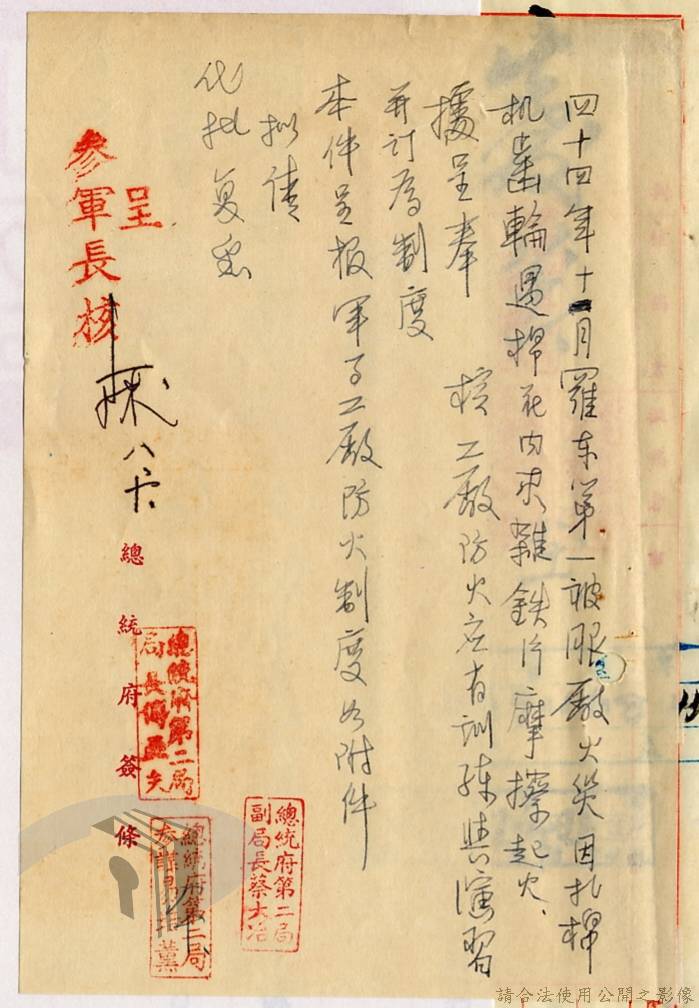 四十四年十一月羅东第一被服廠火災因軋棉
机齒輪遇棉花内夾雜鉄片摩擦起火、
據呈奉　核工廠防火应有訓練與演習
并訂為制度
本件呈报軍子工廠防火制度如附件
拟請
代批复悉
呈
參軍長核
八、六
總統府簽條
總統府第二局
局長傅亞夫
總統府第二局
副局長蔡大冶
總統府第二局
請合法使用公開之影像